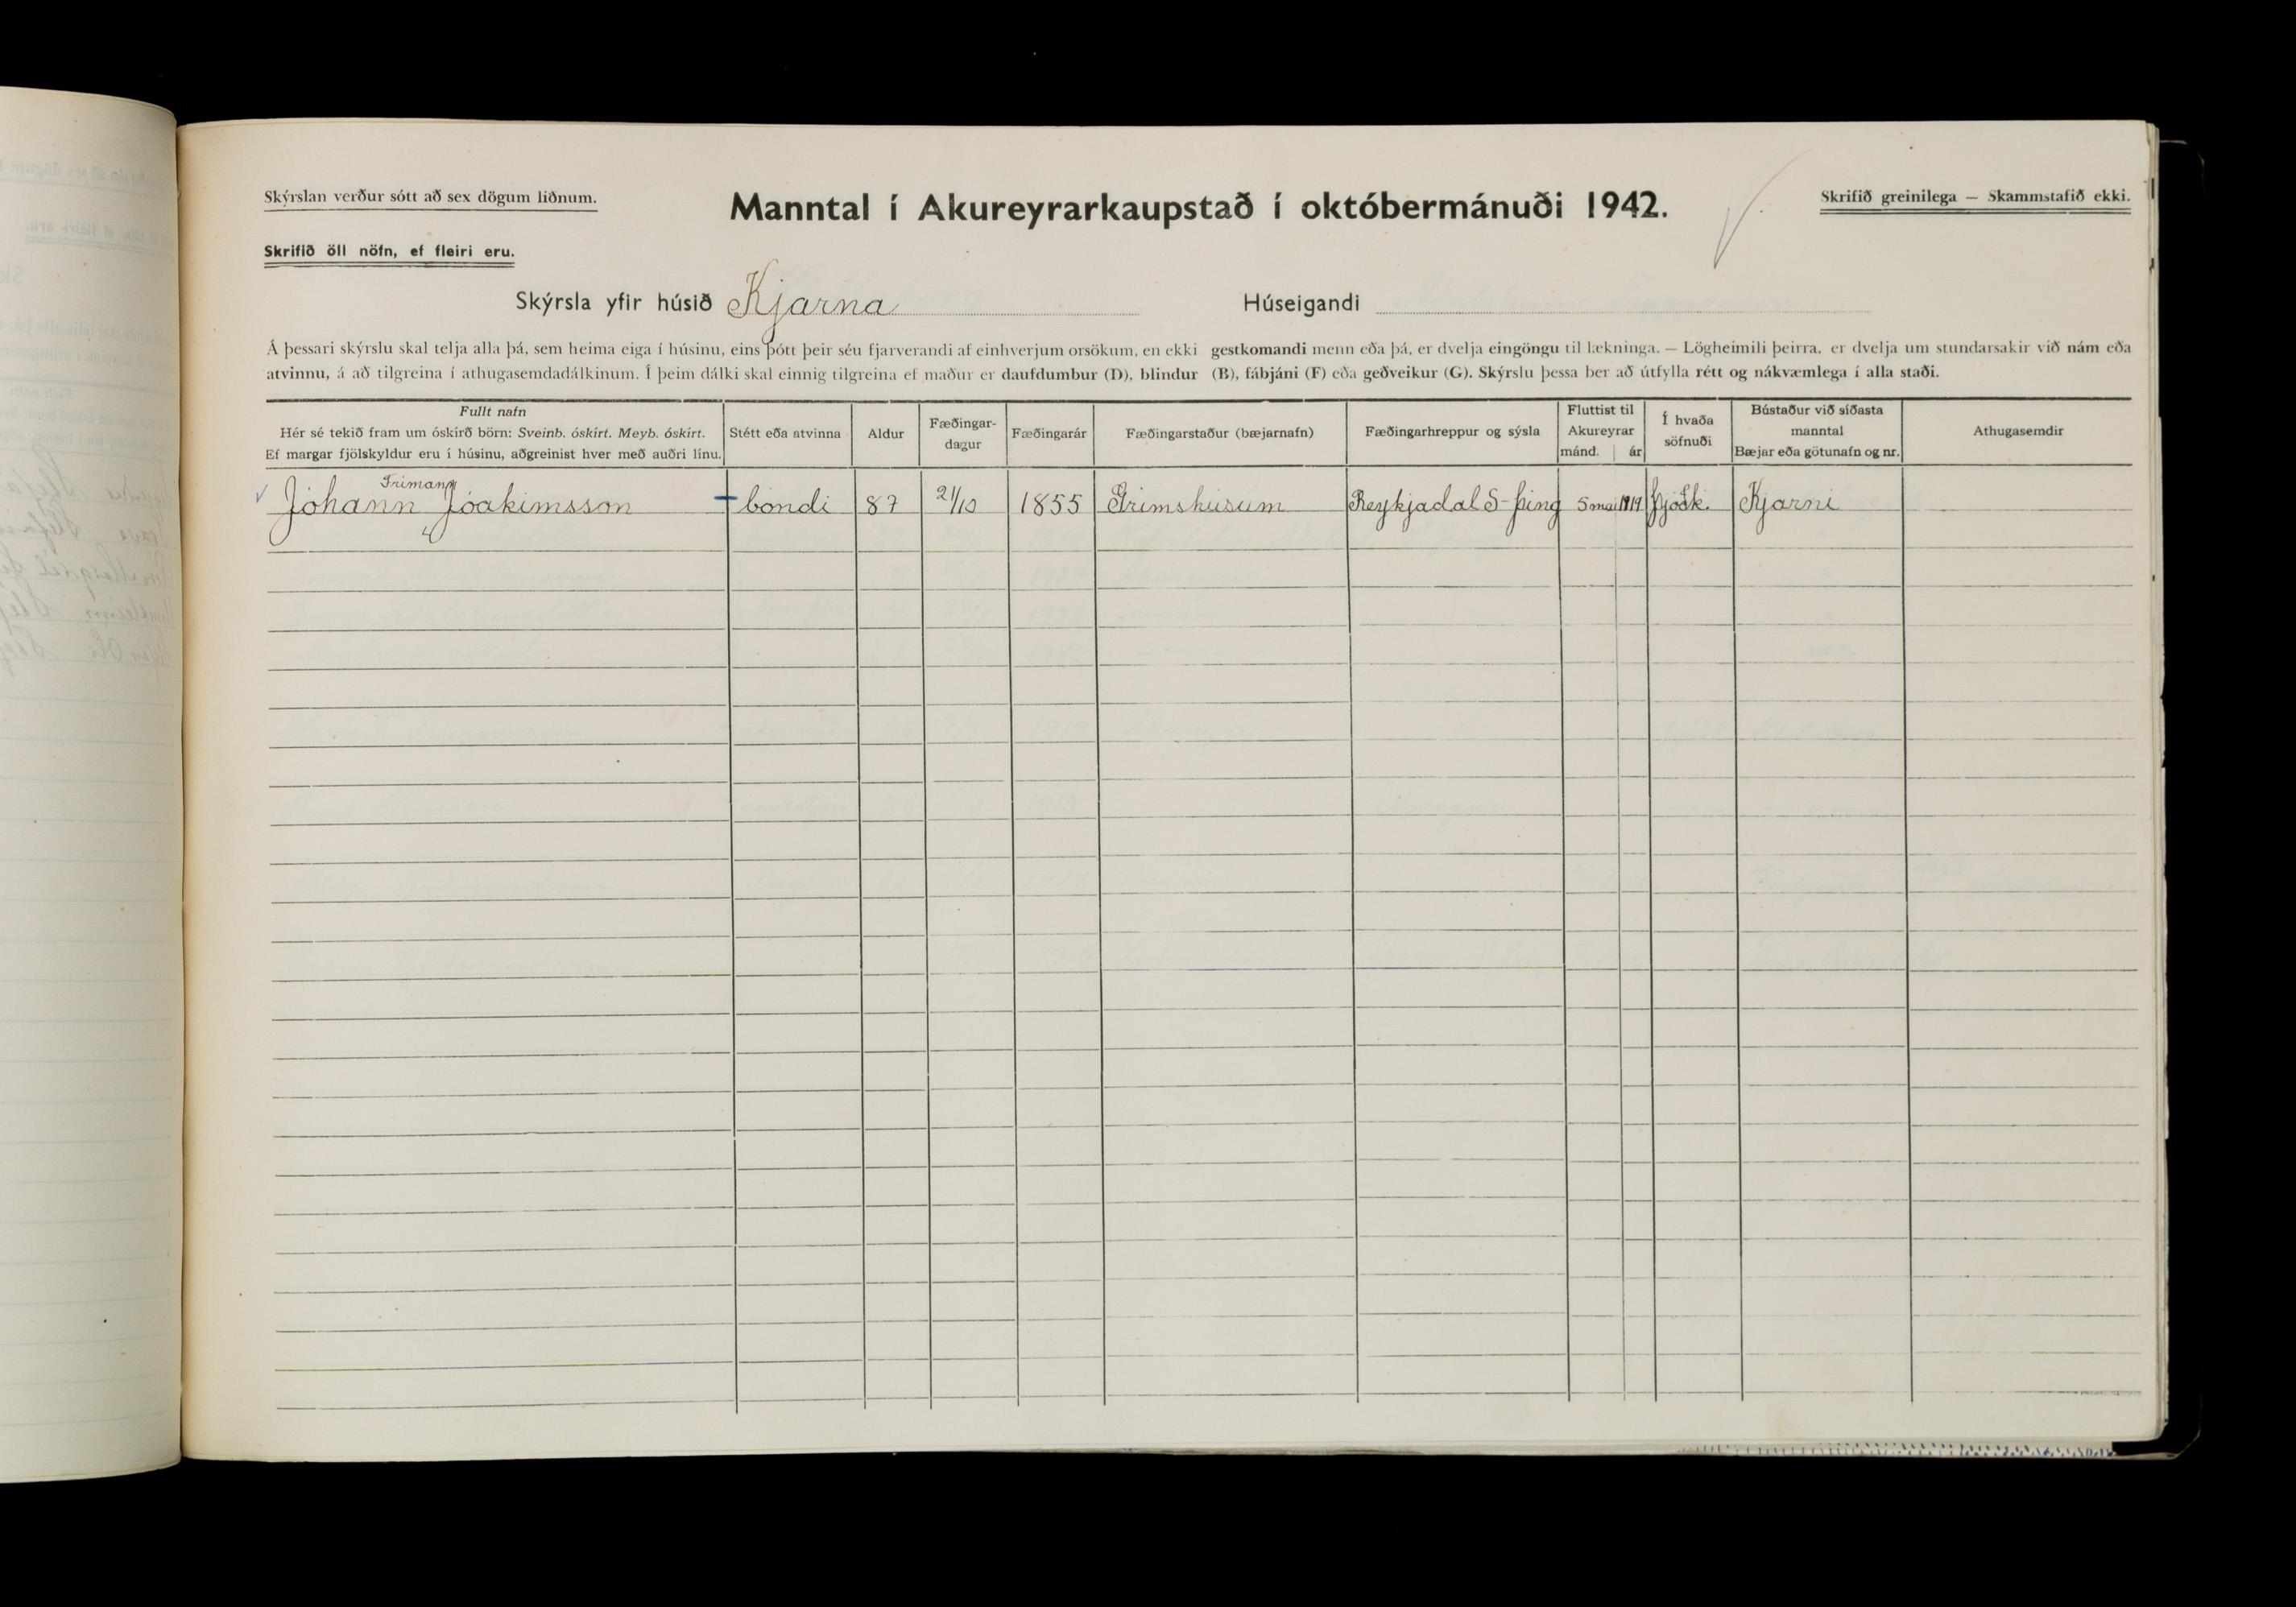 Skýrslan verður sótt að sex dögum liðnum.
Manntal í Akureyrarkaupstað í októbermánuði 1942.
Skrifið greinilega — Skammstafið ekki.
Skrifið öll nöfn, ef fleiri eru.
Skýrsla yfir húsið Kjarna Húseigandi
Á þessari skýrslu skal telja alla þá, sem heima eiga í húsinu, eins þótt þeir séu fjarverandi af einhverjum orsökum, en ekki gestkomandi menn eða þá, er dvelja eingöngu til lækninga. — Lögheimili þeirra, er dvelja um stundarsakir við nám eða
atvinnu, á að tilgreina í athugasemdadálkinum. Í þeim dálki skal einnig tilgreina ef maður er daufdumbur (D), blindur (B), fábjáni (F) eða geðveikur (G). Skýrslu þessa ber að útfylla rétt og nákvæmlega í alla staði.
Fullt nafn
Hér sé tekið fram um óskírð börn: Sveinb. óskírt. Meyb. óskírt.
Ef margar fjölskyldur eru í húsinu, aðgreinist hver með auðri línu.
Stétt eða atvinna
Aldur
Fæðingar-
dagur
Fæðingarár
Fæðingarstaður (bæjarnafn)
Fæðingarhreppur og sýsla
Fluttist til
Akureyrar
mánd. ár
Í hvaða
söfnuði
Bústaður við síðasta
manntal
Bæjar eða götunafn og nr.
Athugasemdir
Frímann
Jóhann Jóakimsson bóndi 87 21/10 1855 Grímshúsum Reykjadal S-þing 5 mai 1919 þjóðk. Kjarni